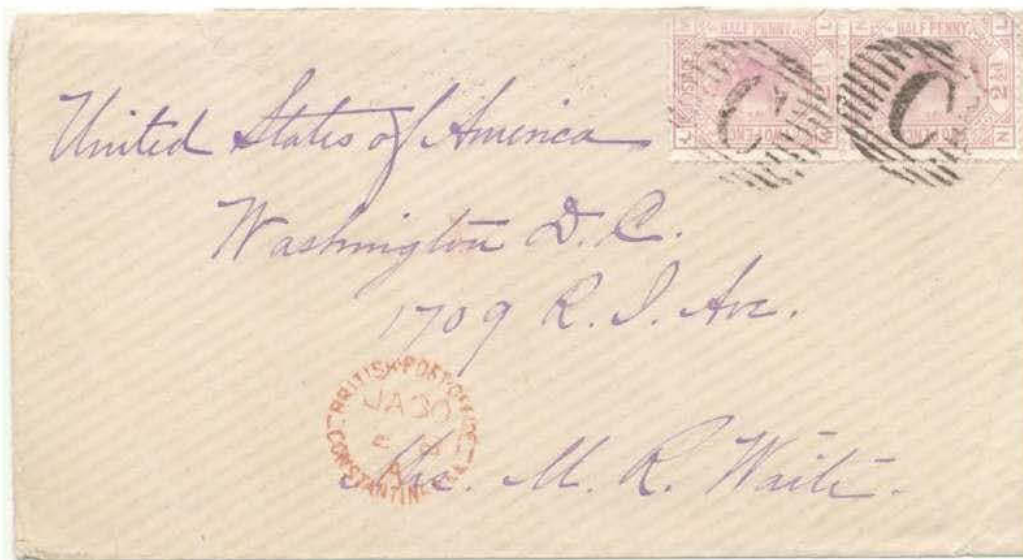 HALF PENNY HALF PENNY
C C
United States of America
Washington D.C.
1709 R. I. Ave.
BRITISH POST OFFICE
JA 30
CONSTANTINOPLE
M. R. Waite.